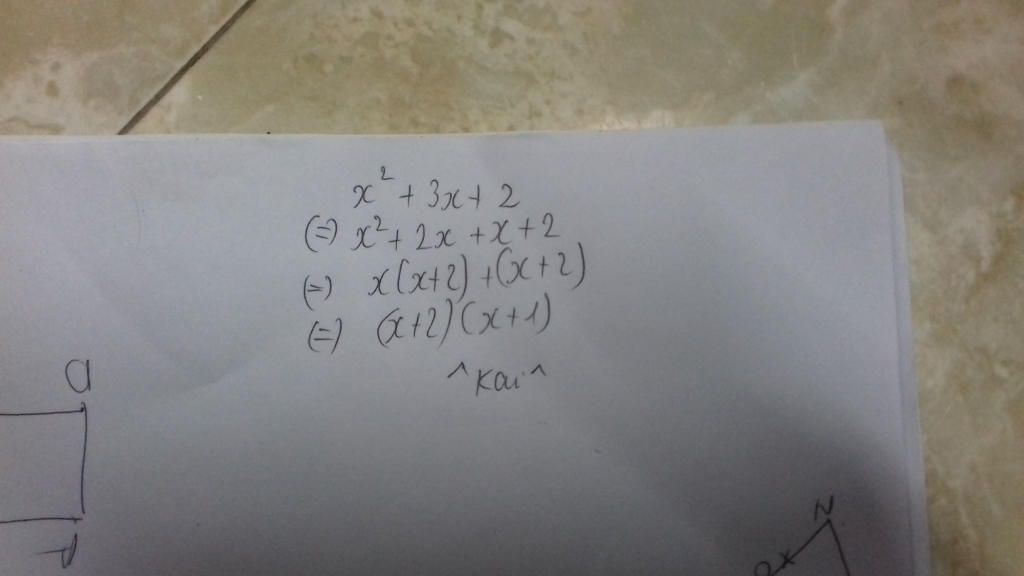 x² + 3x + 2
(=) x² + 2x + x + 2
(=) x(x+2) + (x+2)
(=) (x+2)(x+1)
^Kai^
a
N